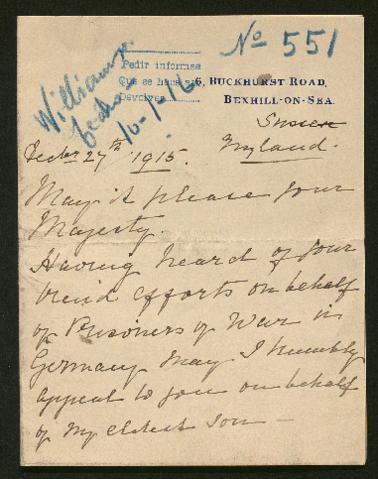 Nº 551
Pedir informes
Que se haga
Devolver
Williams
10-1-16
6, BUCKHURST ROAD,
BEXHILL-ON-SEA.
Sussex
England.
Decbr 27th 1915.
May it please Your
Majesty.
Having heard of Your
kind efforts on behalf
of Prisoners of War in
Germany May I humbly
appeal to you on behalf
of my eldest son —